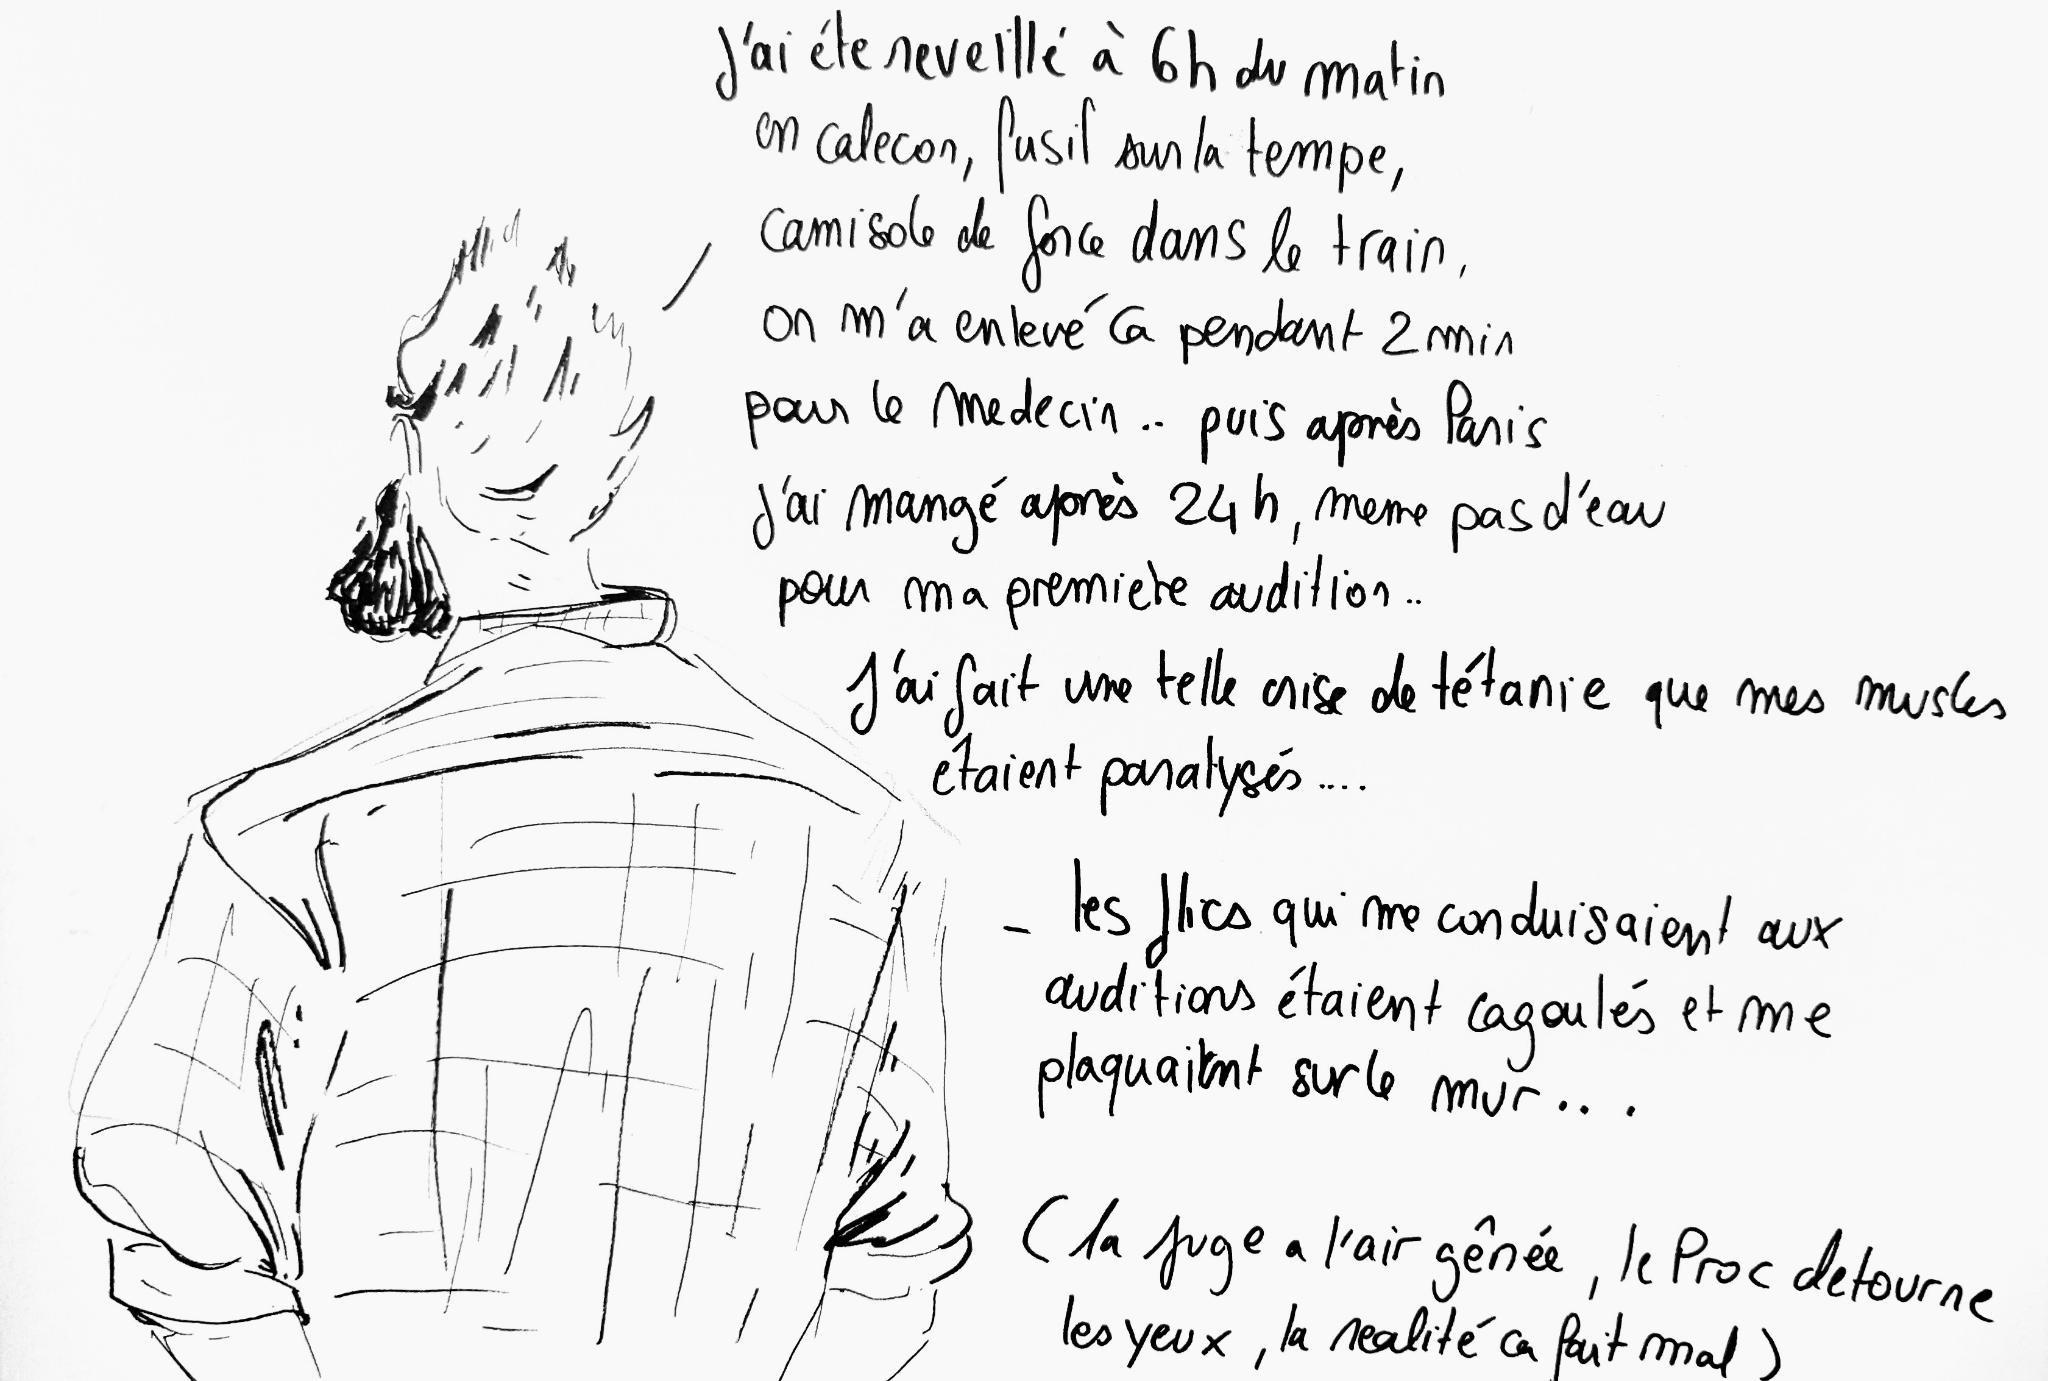 J'ai éte reveillé à 6h du matin
en calecon, fusil sur la tempe,
camisole de force dans le train,
on m'a enlevé ca pendant 2 min
pour le medecin.. puis après Paris
J'ai mangé après 24h, meme pas d'eau
pour ma premiere audition..
J'ai fait une telle crise de tétanie que mes muscles
étaient paralysés....
– les flics qui me conduisaient aux
auditions étaient cagoulés et me
plaquaient sur le mur...
(la juge a l'air gênée, le Proc detourne
les yeux, la realité ca fait mal)